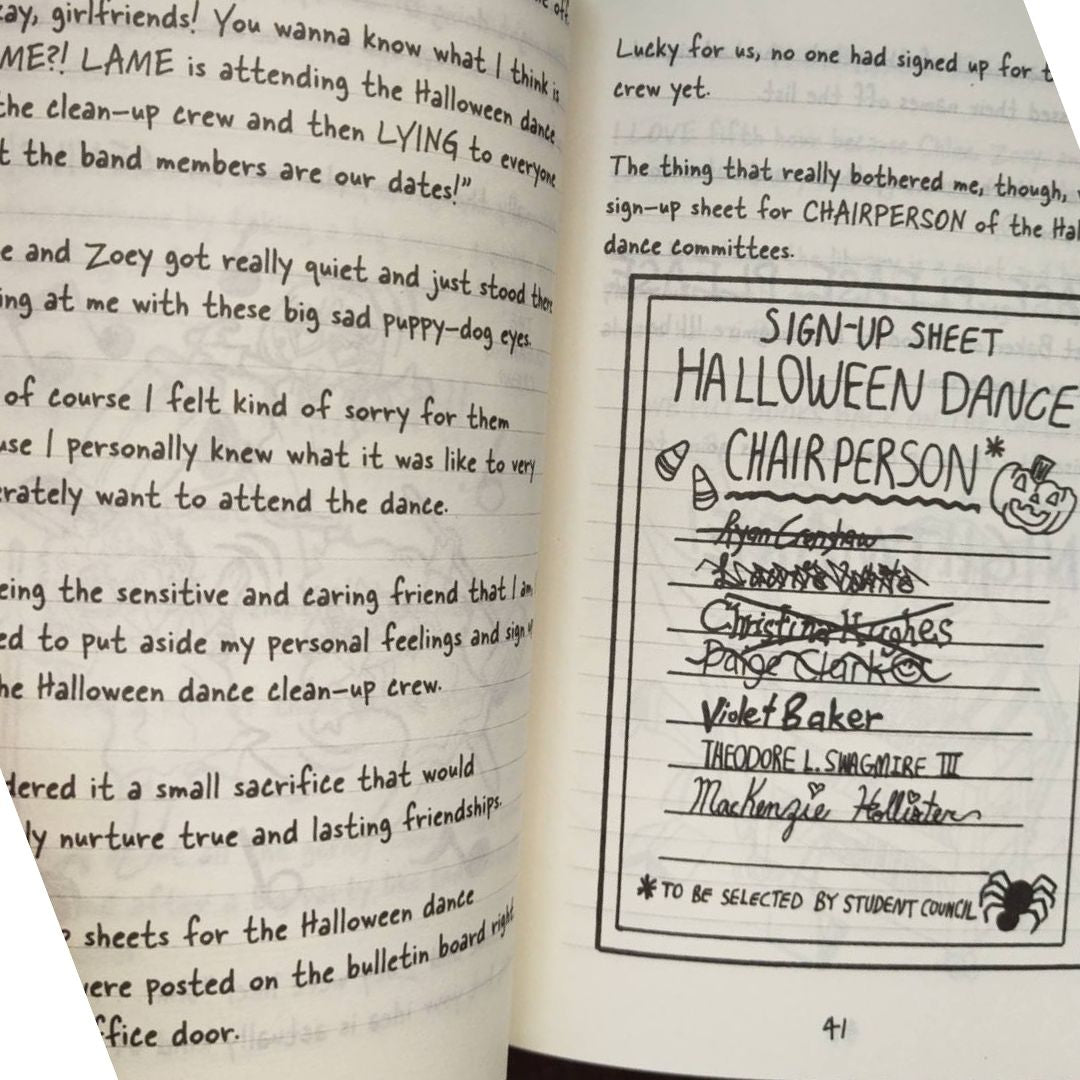 girlfriends! You wanna know what I think is
ME?! LAME is attending the Halloween dance
the clean-up crew and then LYING to everyone
t the band members are our dates!"
e and Zoey got really quiet and just stood there
ing at me with these big sad puppy-dog eyes.
of course I felt kind of sorry for them
use I personally knew what it was like to very
rately want to attend the dance.
eing the sensitive and caring friend that I am
ed to put aside my personal feelings and sign
he Halloween dance clean-up crew.
dered it a small sacrifice that would
ly nurture true and lasting friendships.
sheets for the Halloween dance
were posted on the bulletin board right
ffice door.
Lucky for us, no one had signed up for t
crew yet.
The thing that really bothered me, though,
sign-up sheet for CHAIRPERSON of the Hal
dance committees.
SIGN-UP SHEET
HALLOWEEN DANCE
CHAIRPERSON*
Ryan Crenshaw
Christina Hughes
Paige Clark
Violet Baker
THEODORE L. SWAGMIRE III
MacKenzie Hollister
*TO BE SELECTED BY STUDENT COUNCIL
41